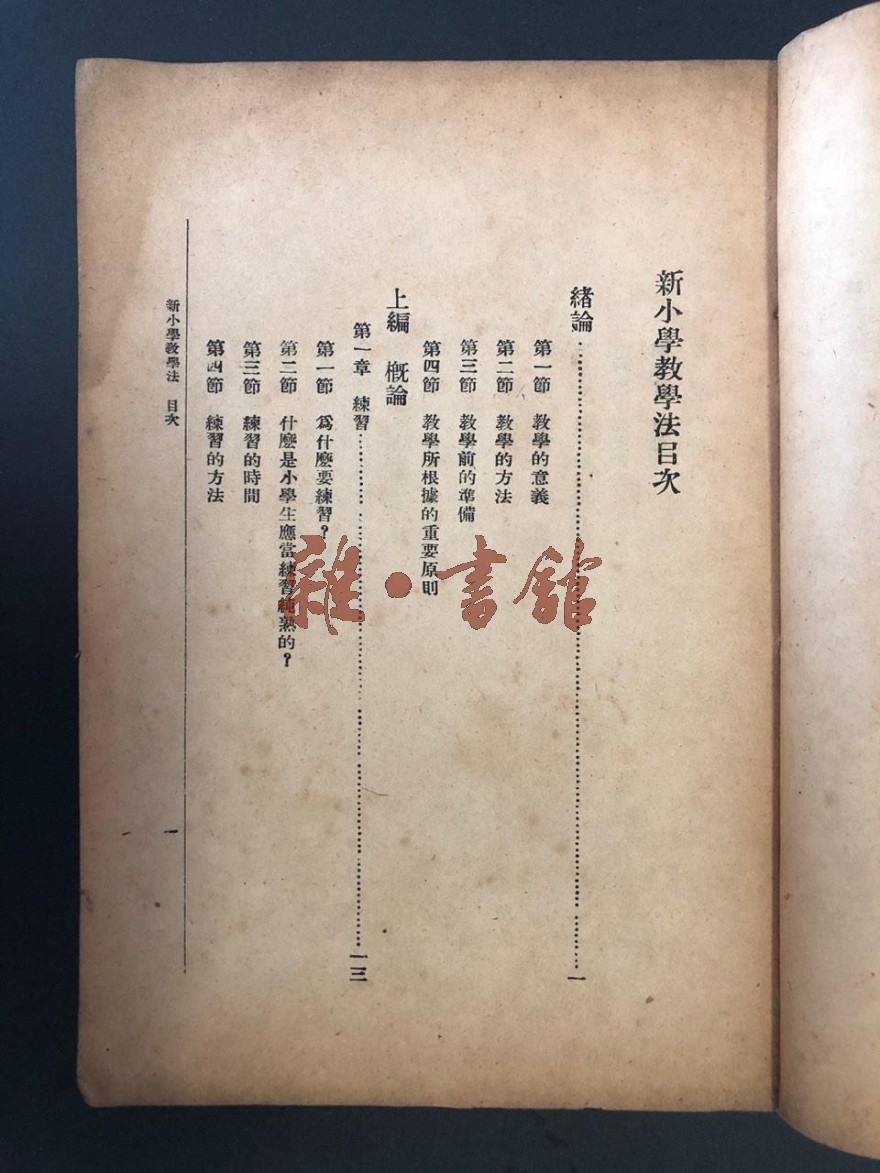 新小學教學法目次
緒論⋯⋯⋯⋯⋯⋯⋯⋯⋯⋯⋯⋯⋯⋯一
第一節 教學的意義
第二節 教學的方法
第三節 教學前的準備
第四節 教學所根據的重要原則
上編 概論
第一章 練習⋯⋯⋯⋯⋯⋯⋯⋯⋯⋯⋯⋯一三
第一節 爲什麼要練習？
第二節 什麼是小學生應當練習純熟的？
第三節 練習的時間
第四節 練習的方法
新小學教學法 目次
一
雜·書館